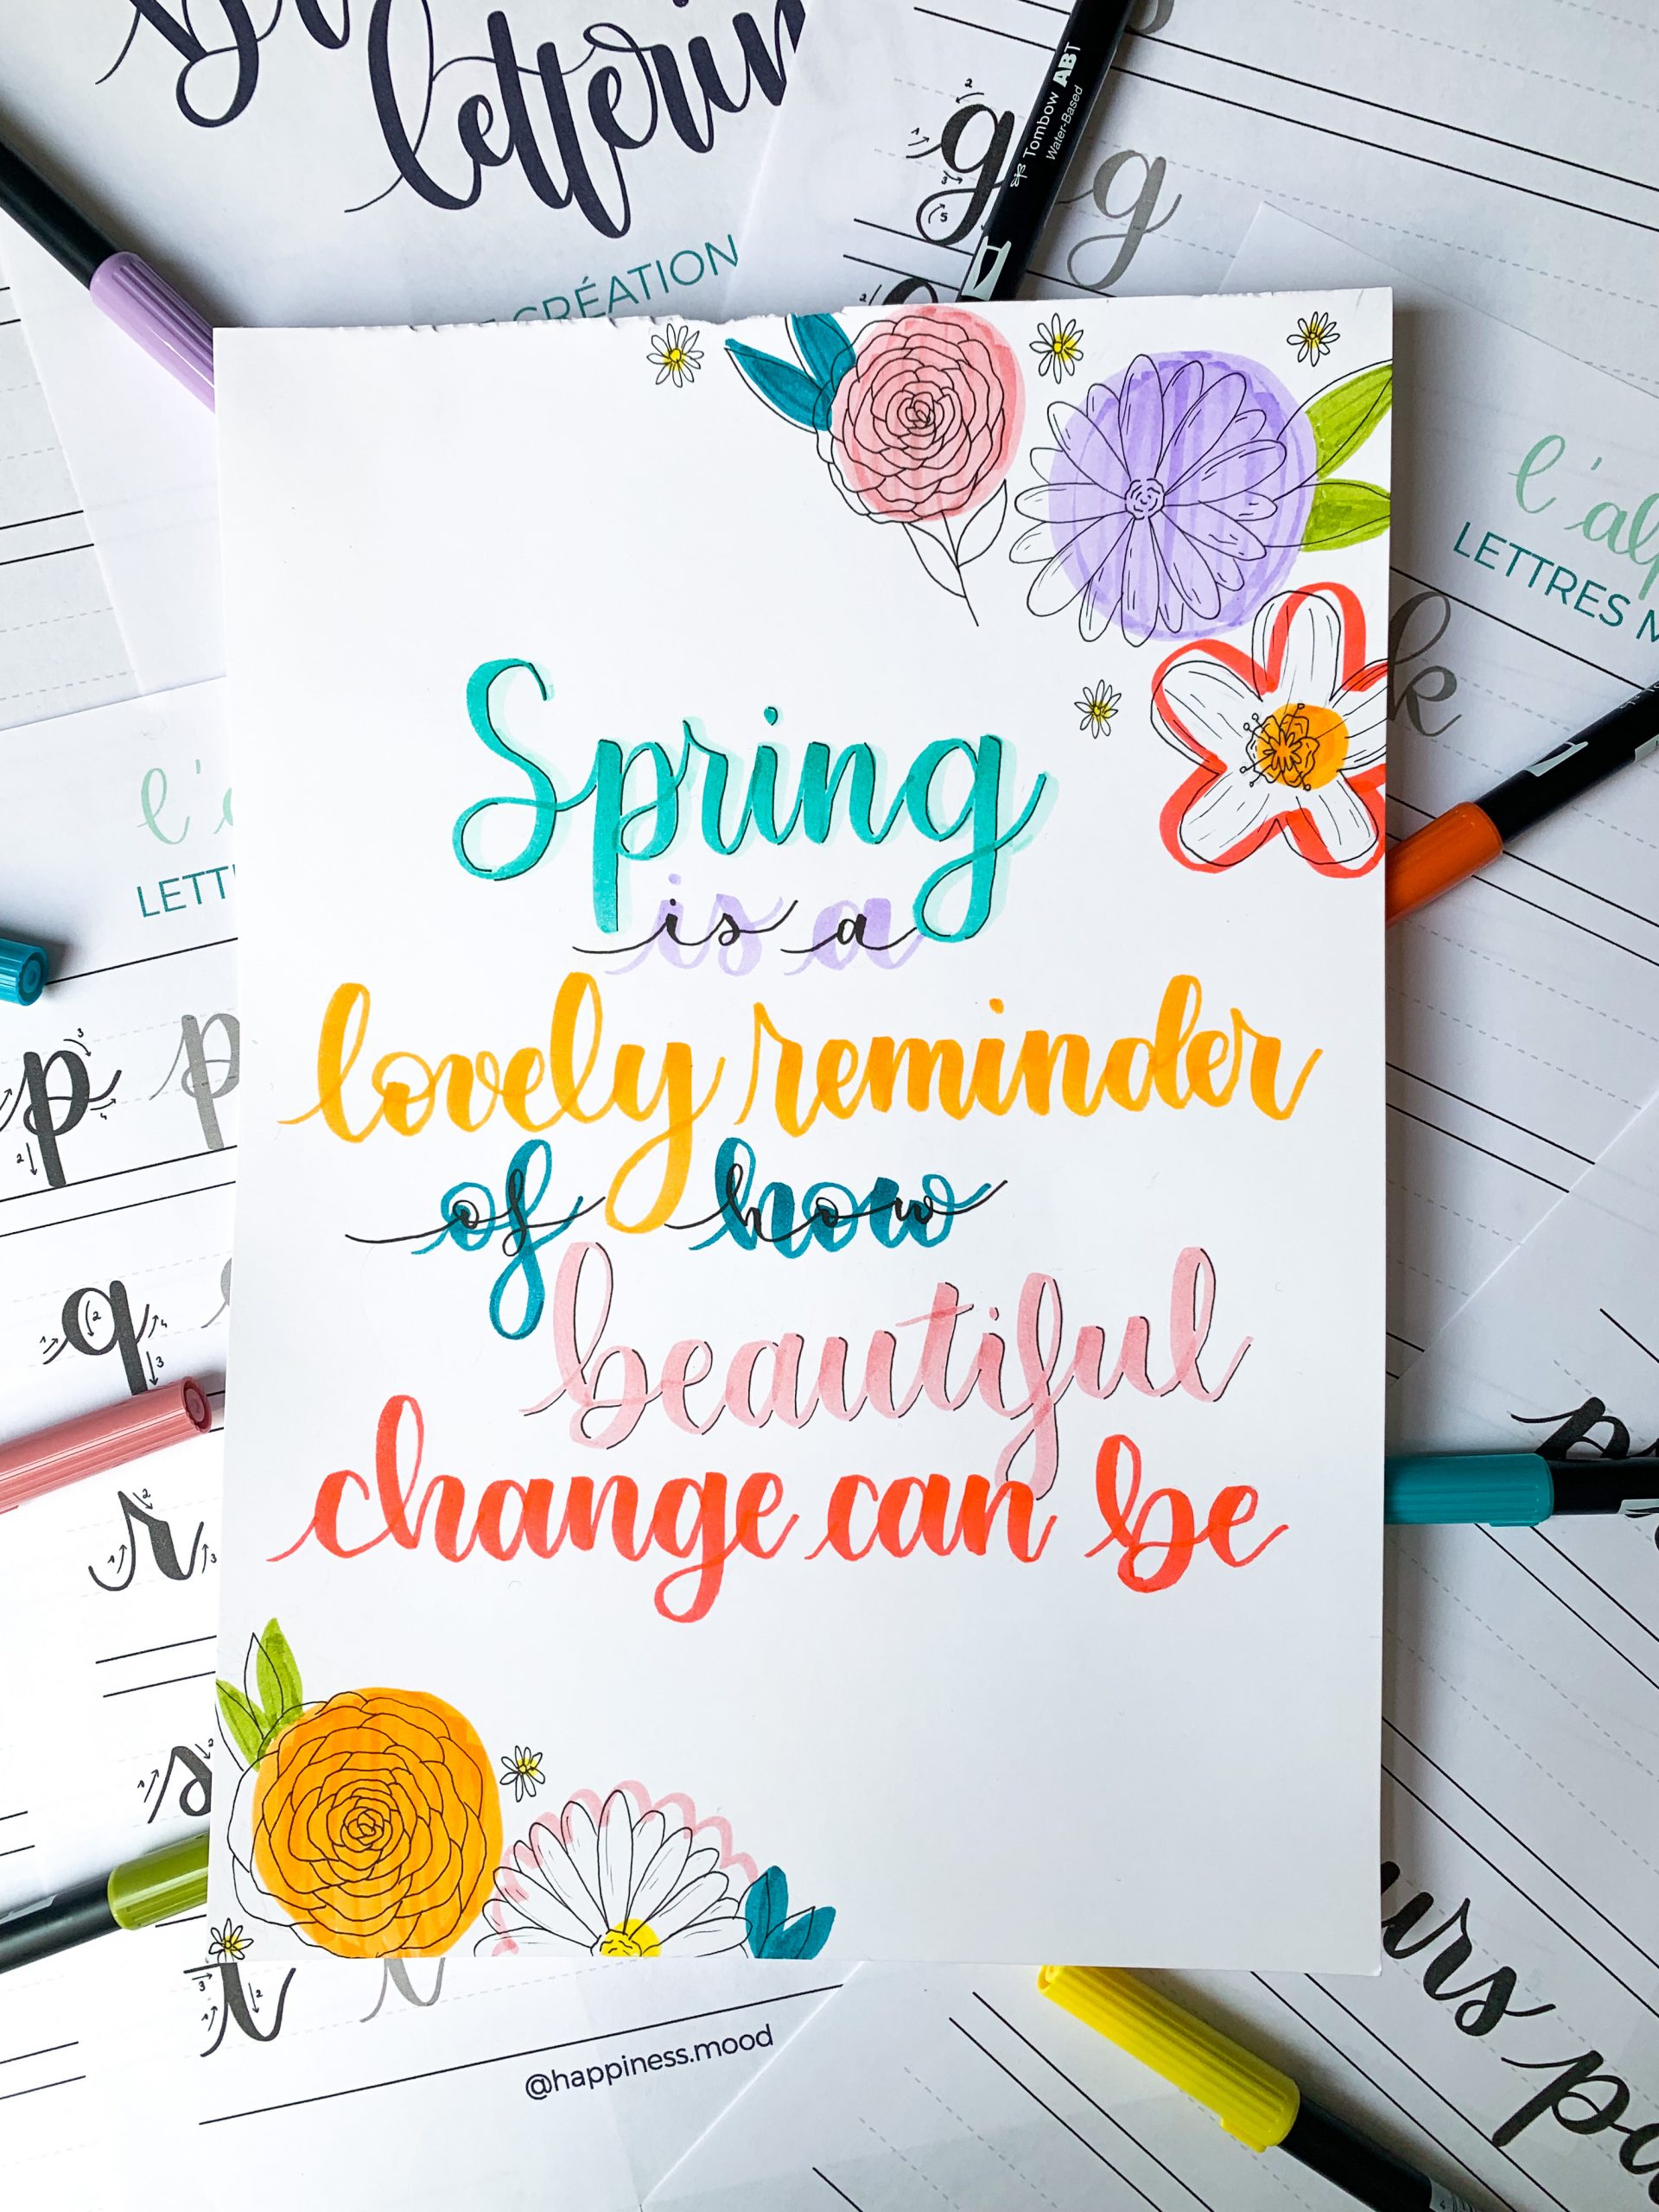 lettering
CRÉATION
g g
Tombow ABT
Water-Based
LETTRES
k
Spring
is a
lovely reminder
of how
beautiful
change can be
p p
q
r
s
t t
@happiness.mood